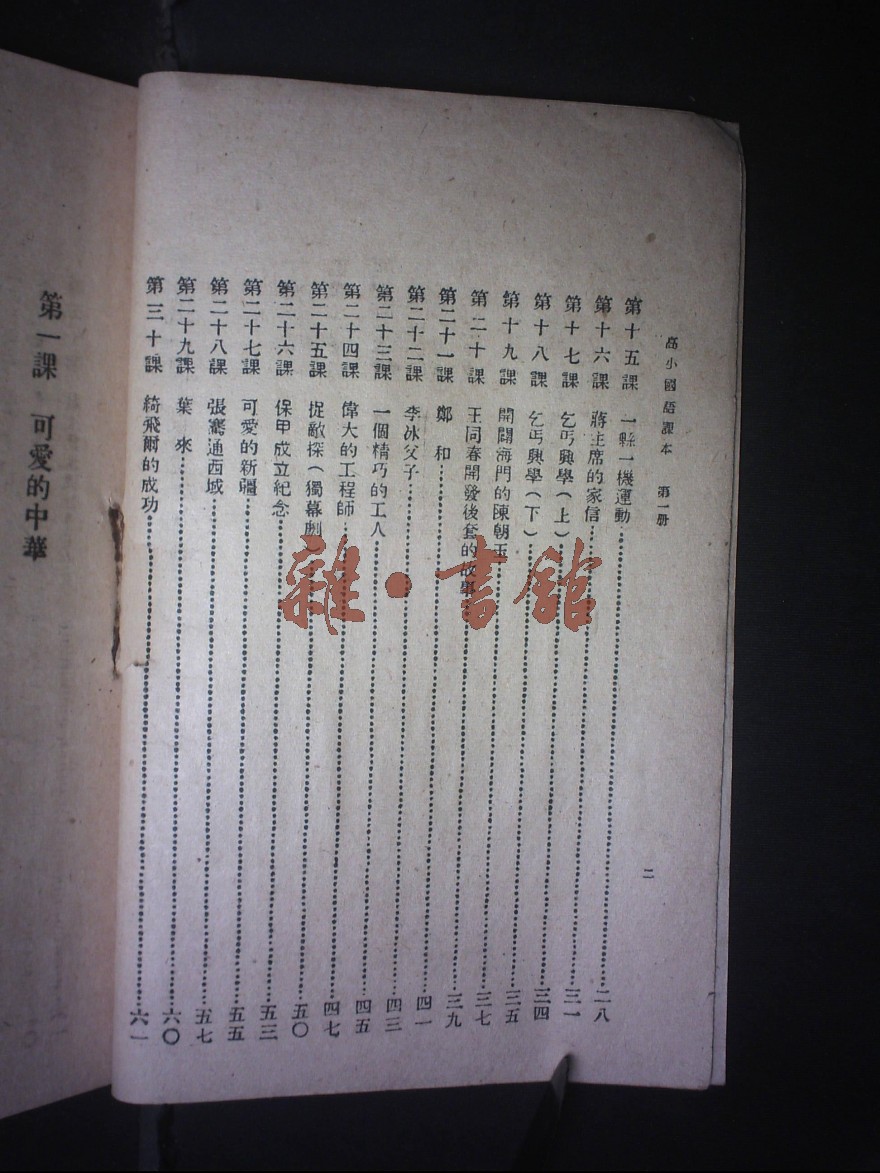 高小國語課本 第一册
二
第十五課 一縣一機運動……二八
第十六課 蔣主席的家信……三一
第十七課 乞丐興學(上)……三四
第十八課 乞丐興學(下)……三五
第十九課 開闢海門的陳朝玉……三七
第二十課 王同春開發後套的故事……三九
第二十一課 鄭和……四一
第二十二課 李冰父子……四三
第二十三課 一個精巧的工人……四五
第二十四課 偉大的工程師……四七
第二十五課 捉敵探(獨幕劇)……五〇
第二十六課 保甲成立紀念……五三
第二十七課 可愛的新疆……五五
第二十八課 張騫通西域……五七
第二十九課 葉來……六〇
第三十課 綺飛爾的成功……六一
第一課 可愛的中華
雜·書館